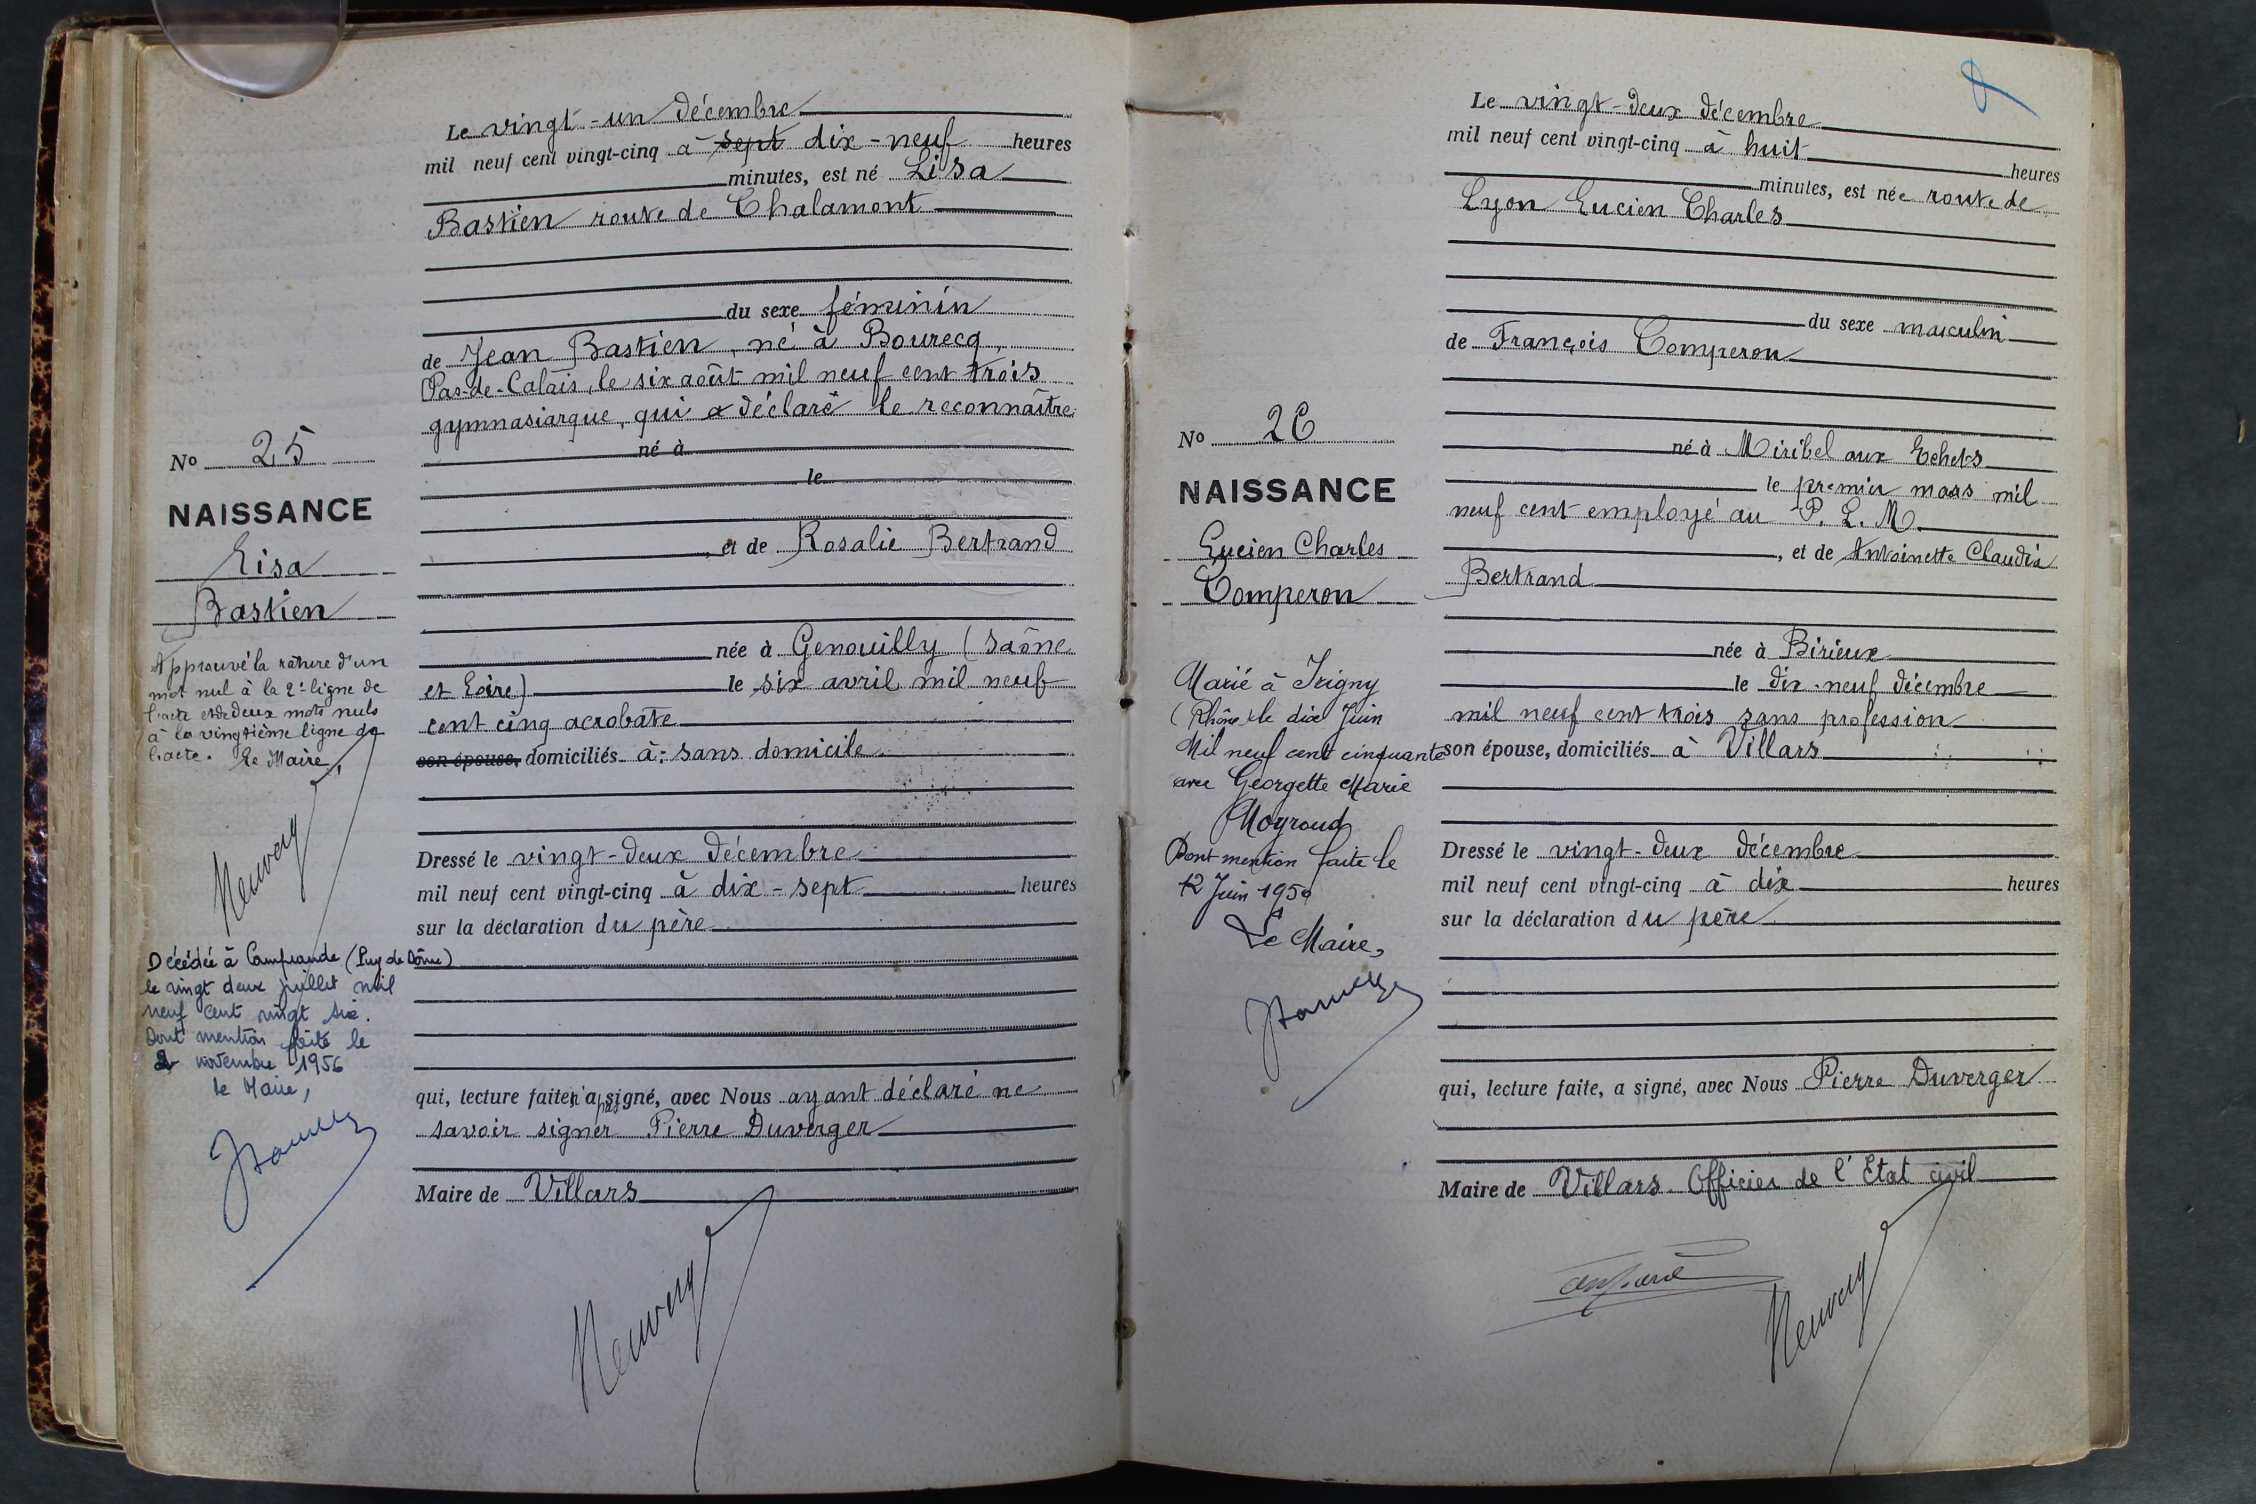 Le vingt-un décembre
mil neuf cent vingt-cinq à sept dix-neuf heures
minutes, est né Lisa
Bastien route de Chalamont
du sexe féminin
de Jean Bastien, né à Bourecq,
Pas-de-Calais, le six août mil neuf cent trois
gymnasiarque, qui a déclaré le reconnaître
né à
le
, et de Rosalie Bertrand
née à Genouilly (Saône
et Loire) le six avril mil neuf
cent cinq acrobate
son épouse, domiciliés à: sans domicile
Dressé le vingt-deux décembre
mil neuf cent vingt-cinq à dix-sept heures
sur la déclaration du père
qui, lecture faite, n'a pas signé, avec Nous ayant déclaré ne
savoir signer Pierre Duverger
Maire de Villars
No 25
NAISSANCE
Lisa
Bastien
Approuvé la rature d'un
mot nul à la 2e ligne de
l'acte et de deux mots nuls
à la vingtième ligne de
l'acte. Le Maire,
Décédée à (Puy de Dôme)
le vingt deux juillet mil
neuf cent vingt six.
Dont mention faite le
novembre 1956
Le Maire,
Le vingt-deux décembre
mil neuf cent vingt-cinq à huit heures
minutes, est née route de
Lyon Lucien Charles
du sexe masculin
de François Comperon
né à Miribel aux Echets
le premier mars mil
neuf cent employé au P. L. M.
, et de Antoinette Claudia
Bertrand
née à Birieux
le dix-neuf décembre
mil neuf cent trois sans profession
son épouse, domiciliés à Villars
Dressé le vingt-deux décembre
mil neuf cent vingt-cinq à dix heures
sur la déclaration du père
qui, lecture faite, a signé, avec Nous Pierre Duverger
Maire de Villars. Officier de l'Etat civil
No 26
NAISSANCE
Lucien Charles
Comperon
Marié à Irigny
(Rhône) le dix Juin
Mil neuf cent cinquante
avec Georgette Marie
Moyroud
Dont mention faite le
12 Juin 1950
Le Maire,